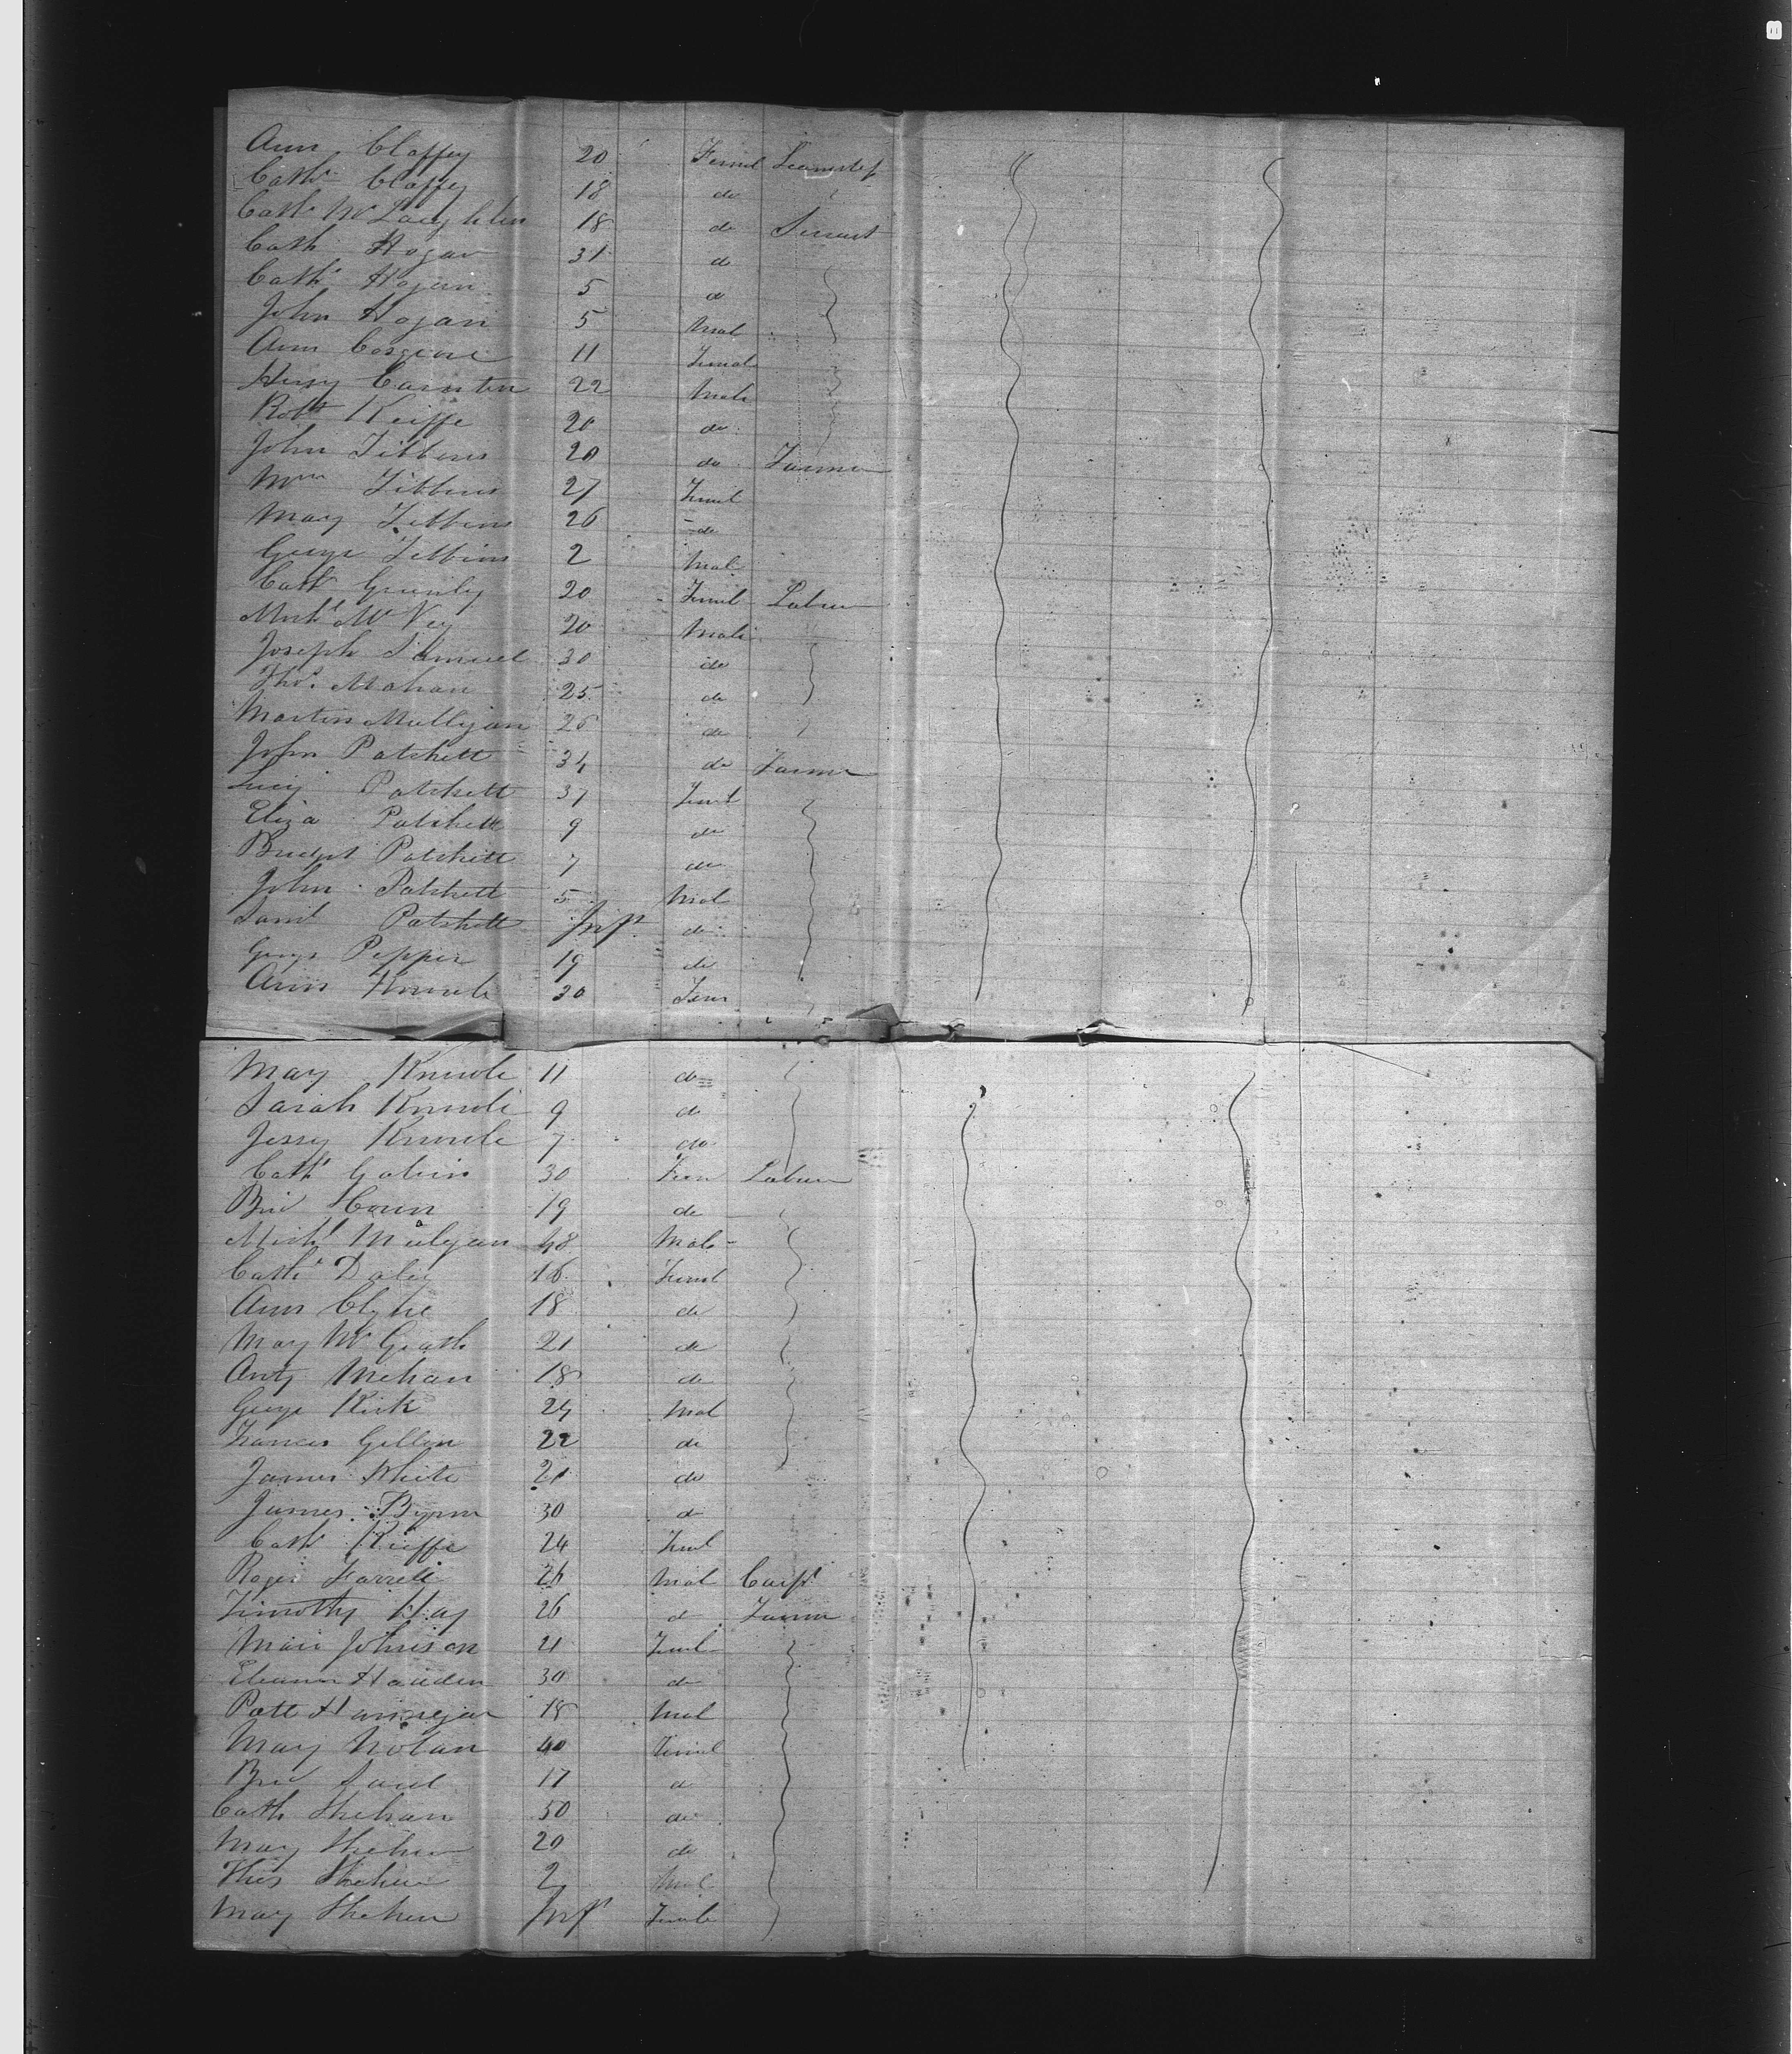 Ann Claffey 20 Femal
Cath Claffey 18 do
Cath McLaughlin 18 do Servant
Cath Hogan 31 do
Cath Hogan 5 do
John Hogan 5 Mal
Ann Cosgrove 11 Femal
Henry 22 Male
Robt Keiffe 20 do
John Tibbins 20 do Farmer
Mrs Tibbins 27 Femal
Mary Tibbins 26 do
George Tibbins 2 Mal
Cath 20 Femal Labour
Mich McVey 20 Male
Joseph Samuel 30 do
Thos Mahan 25 do
Martin Mulligan 26 do
John Patchett 34 do Farmer
Lucy Patchett 37 Feml
Eliza Patchett 9 do
Bridget Patchett 7 do
John Patchett 5 Mal
Saml Patchett Inft do
George Pepper 19 do
Ann 30 Fem
Mary 11 do
Sarah 9 do
Jessy 7 do
Cath 30 Fem Labour
Brid 19 do
Michl Mulligan 48 Male
Cath Daley 16 Feml
Ann Clyne 18 do
Mary McGrath 21 do
Anty Mehan 18 do
George Kirk 24 Mal
Frances 22 do
James White 21 do
James Byrne 30 do
Cath Kieffe 24 Feml
Roger Farrell 26 Mal Carpt
Timothy Hay 26 d Farmer
Johnson 21 Feml
30 do
Patt 18 Mal
Mary Nolan 40 Femal
Brid 17 do
Cath Shehan 50 do
Mary Shehan 20 do
Thos Shehan 2 Mal
Mary Shehan Inft Female